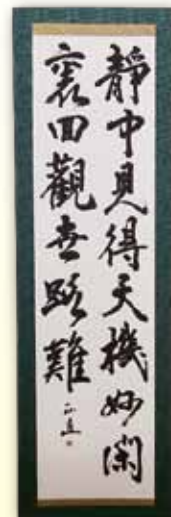 靜中見得天機妙閑
裏回觀世路難
正直